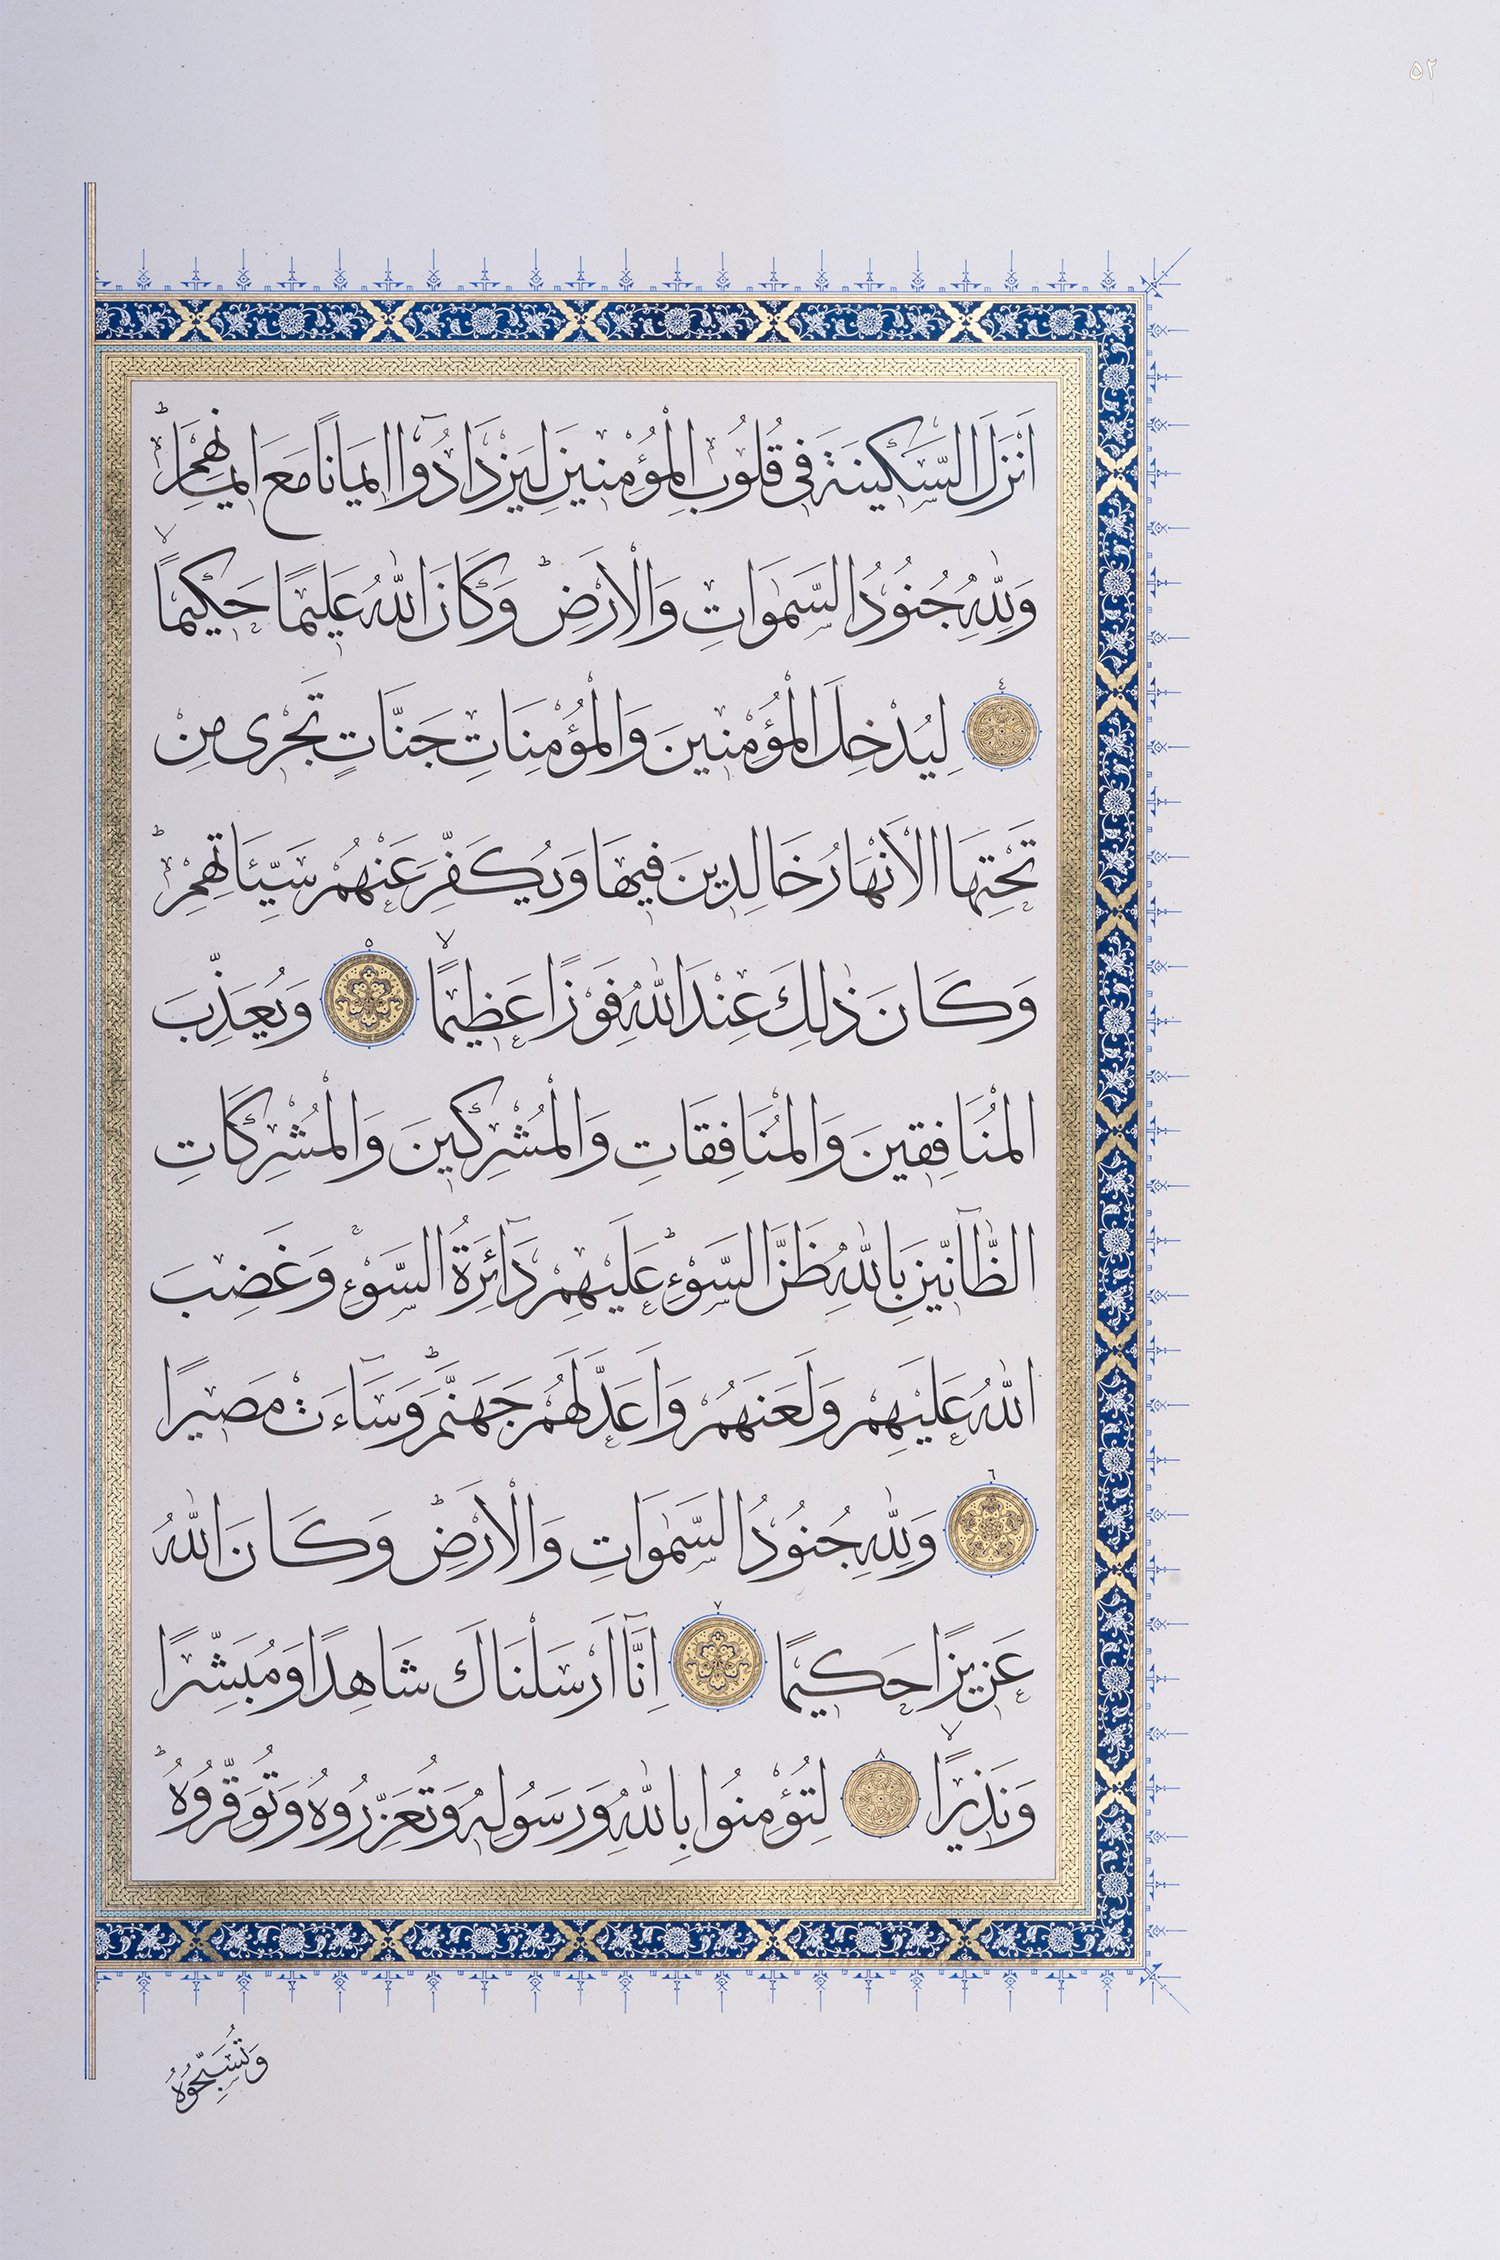 ٥٢
اَنْزَلَ السَّكٖينَةَ فٖى قُلُوبِ الْمُؤْمِنٖينَ لِيَزْدَادُٓوا اٖيمَانًا مَعَ اٖيمَانِهِمْؕ
وَلِلّٰهِ جُنُودُ السَّمٰوَاتِ وَالْاَرْضِؕ وَكَانَ اللّٰهُ عَلٖيمًا حَكٖيمًاۙ
٤ لِيُدْخِلَ الْمُؤْمِنٖينَ وَالْمُؤْمِنَاتِ جَنَّاتٍ تَجْرٖى مِنْ
تَحْتِهَا الْاَنْهَارُ خَالِدٖينَ فٖيهَا وَيُكَفِّرَ عَنْهُمْ سَيِّـَٔاتِهِمْؕ
وَكَانَ ذٰلِكَ عِنْدَ اللّٰهِ فَوْزًا عَظٖيمًاۙ ٥ وَيُعَذِّبَ
الْمُنَافِقٖينَ وَالْمُنَافِقَاتِ وَالْمُشْرِكٖينَ وَالْمُشْرِكَاتِ
الظَّٓانّٖينَ بِاللّٰهِ ظَنَّ السَّوْءِؕ عَلَيْهِمْ دَٓائِرَةُ السَّوْءِۚ وَغَضِبَ
اللّٰهُ عَلَيْهِمْ وَلَعَنَهُمْ وَاَعَدَّ لَهُمْ جَهَنَّمَؕ وَسَٓاءَتْ مَصٖيرًا
٦ وَلِلّٰهِ جُنُودُ السَّمٰوَاتِ وَالْاَرْضِؕ وَكَانَ اللّٰهُ
عَزٖيزًا حَكٖيمًا ٧ اِنَّٓا اَرْسَلْنَاكَ شَاهِدًا وَمُبَشِّرًا
وَنَذٖيرًاۙ ٨ لِتُؤْمِنُوا بِاللّٰهِ وَرَسُولِهٖ وَتُعَزِّرُوهُ وَتُوَقِّرُوهُؕ
وَتُسَبِّحُوهُ